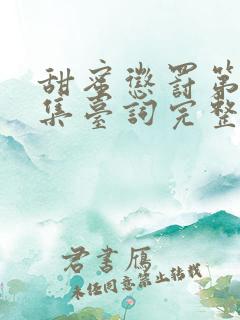 甜蜜懲罰第
集臺詞完整
君書雁
未经同意禁止转载